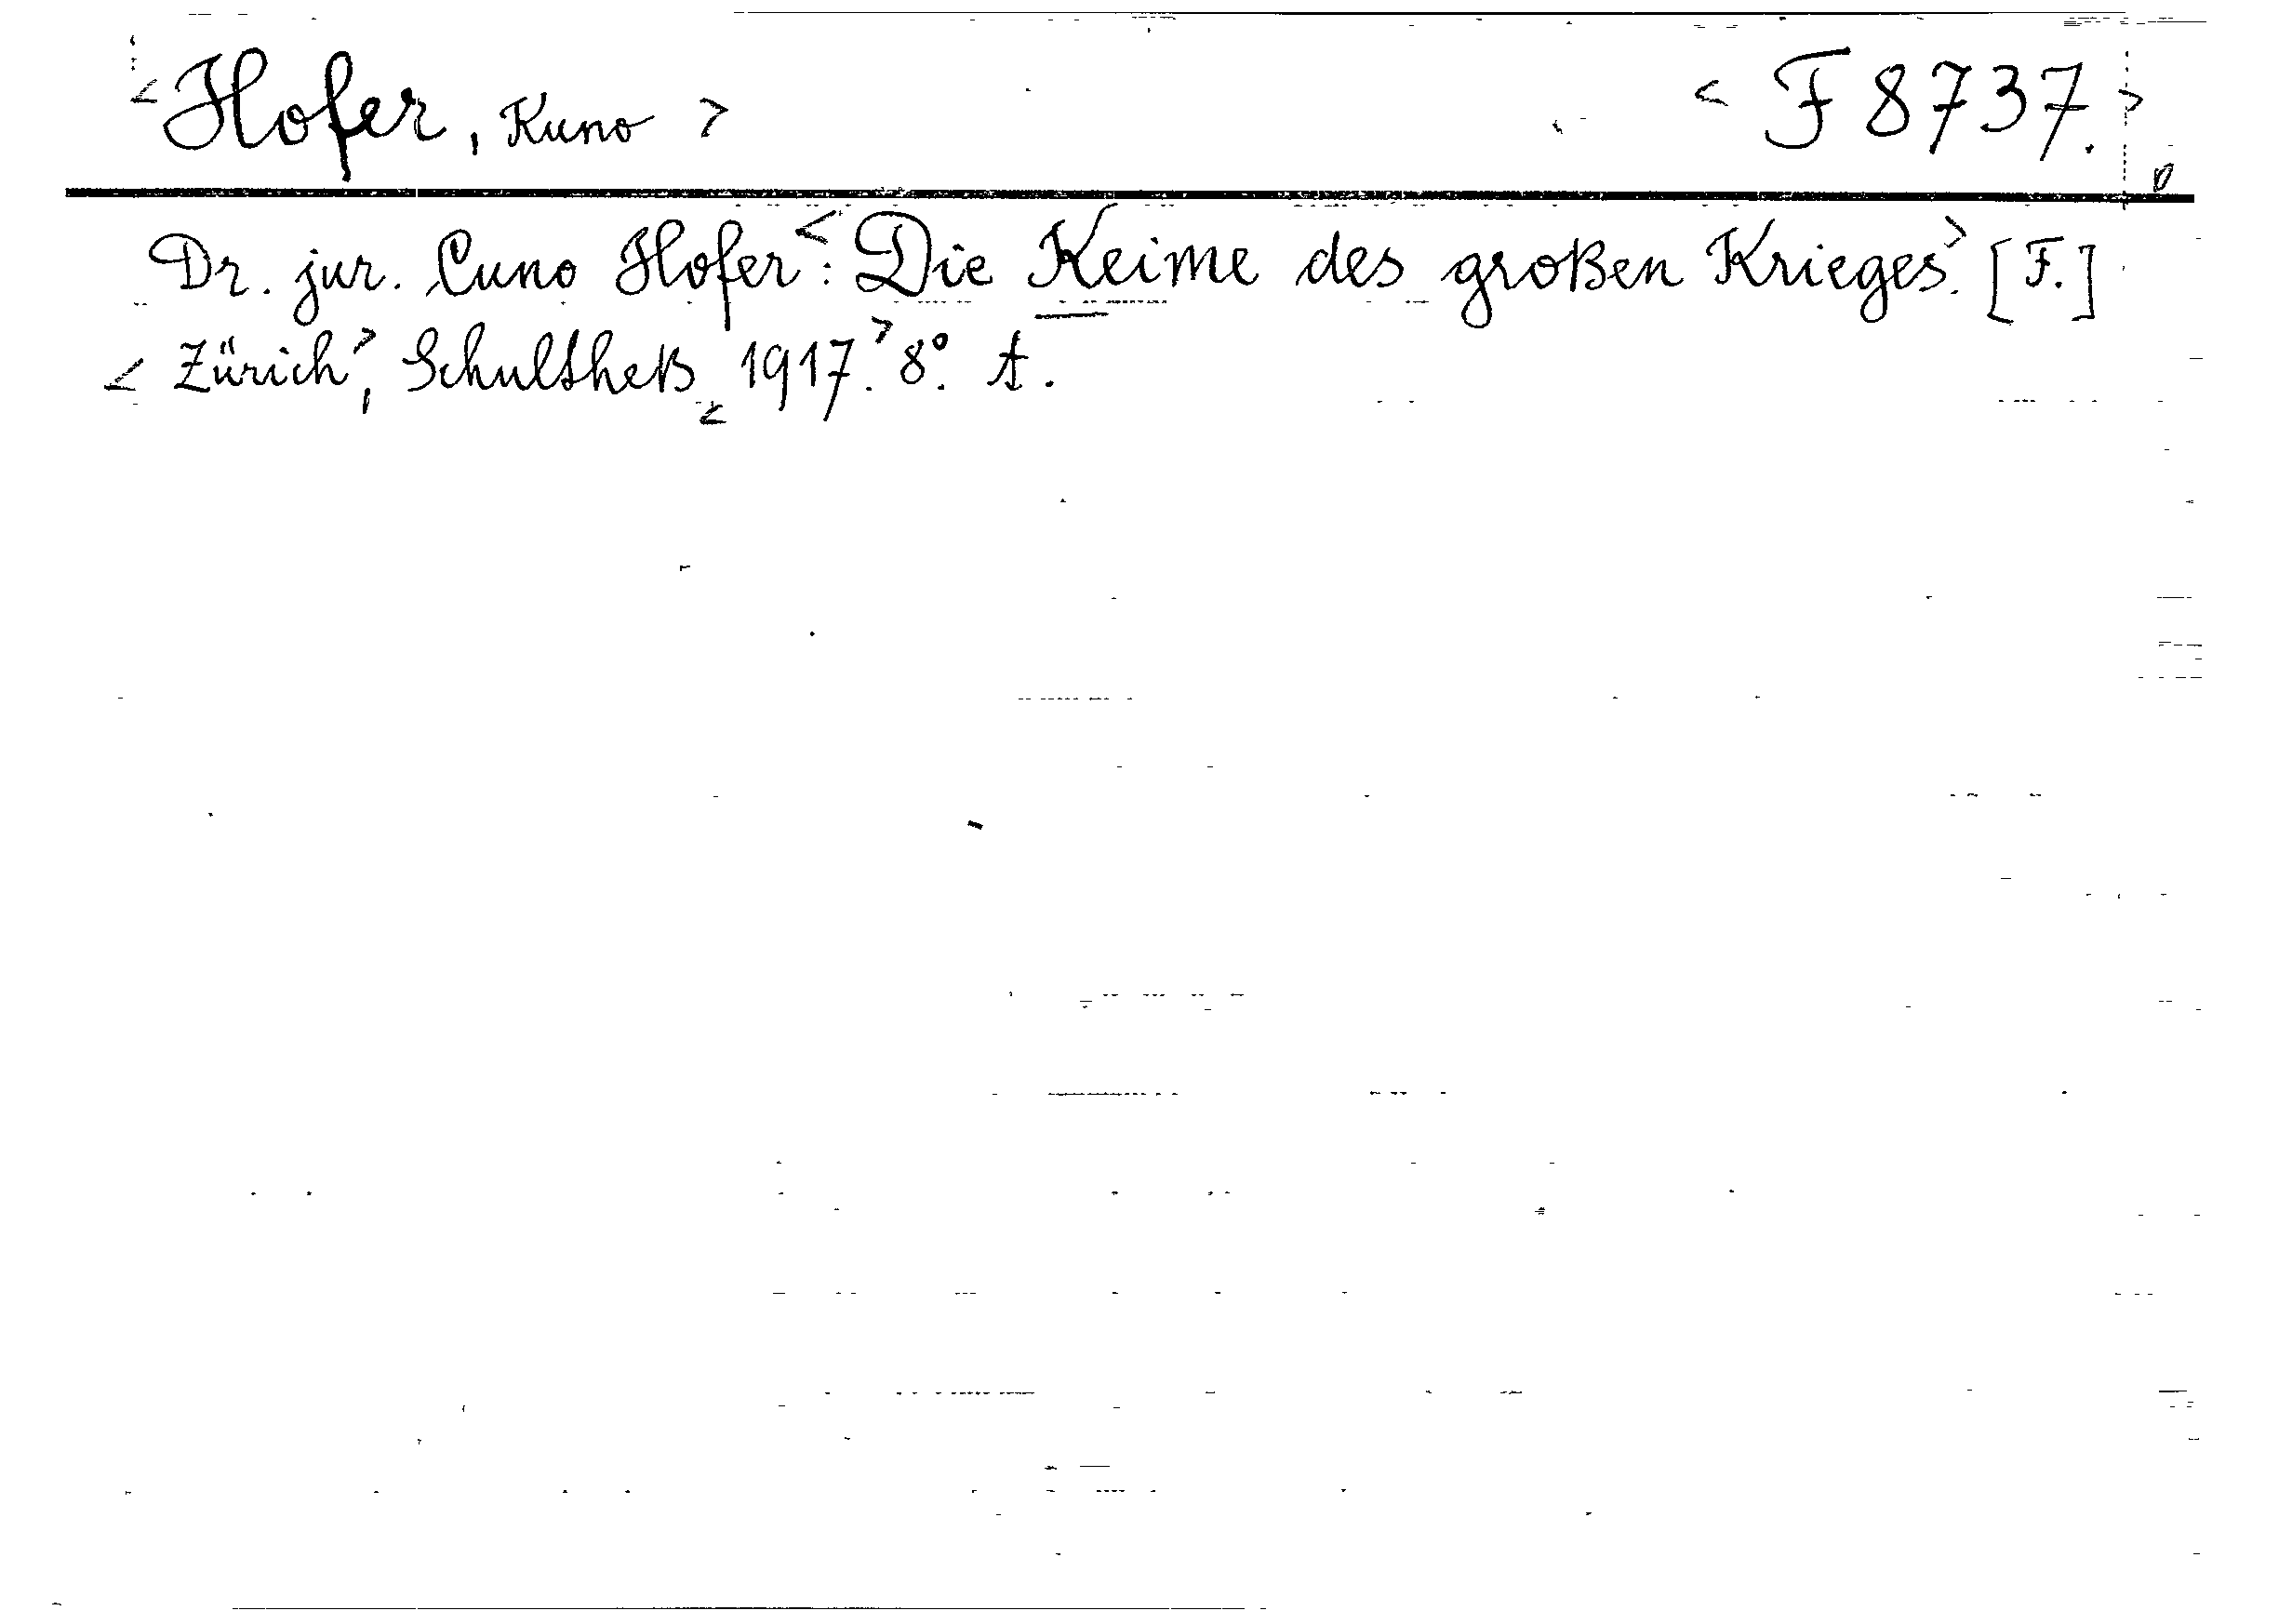 <Hofer, Kuno> <F 8737.>
Dr. jur. Cuno Hofer: <Die Keime des großen Krieges>. [F.]
<Zürich>, Schultheß <1917.> 8°. A.